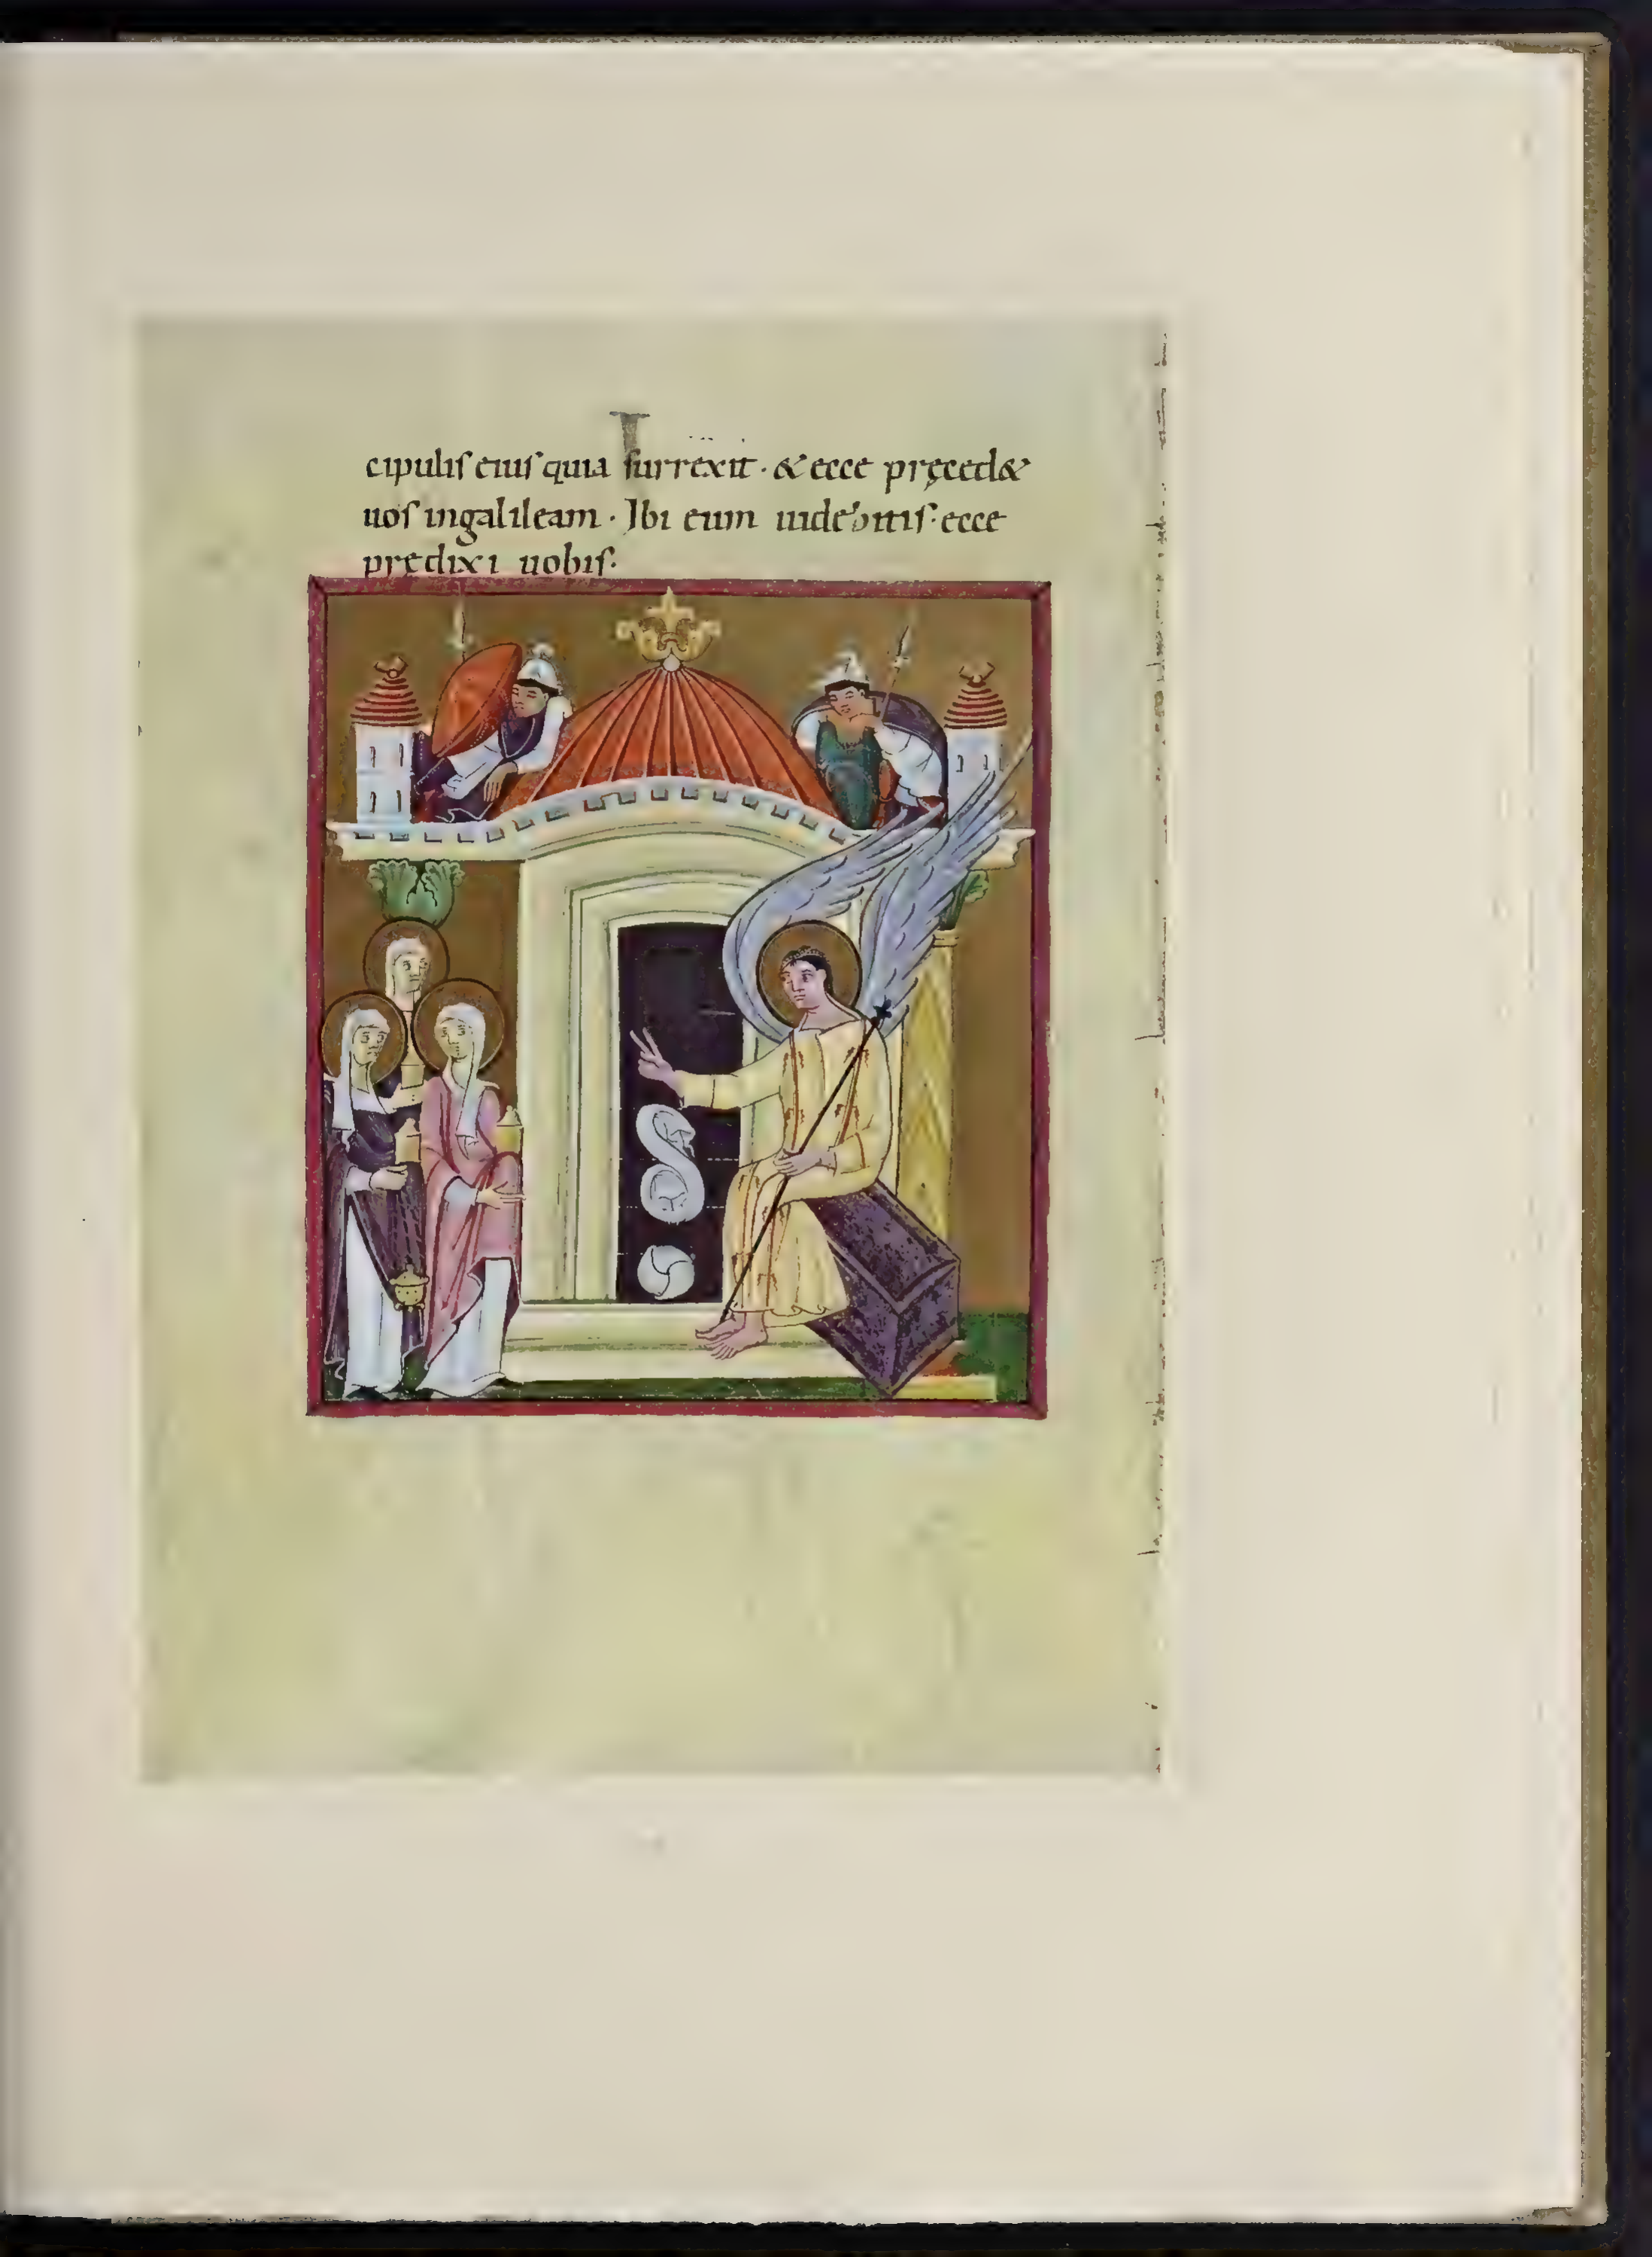 cipulis eius quia surrexit · & ecce pręced&
uos ingalileam · Ibi eum uidebitis · ecce
prędixi uobis ·